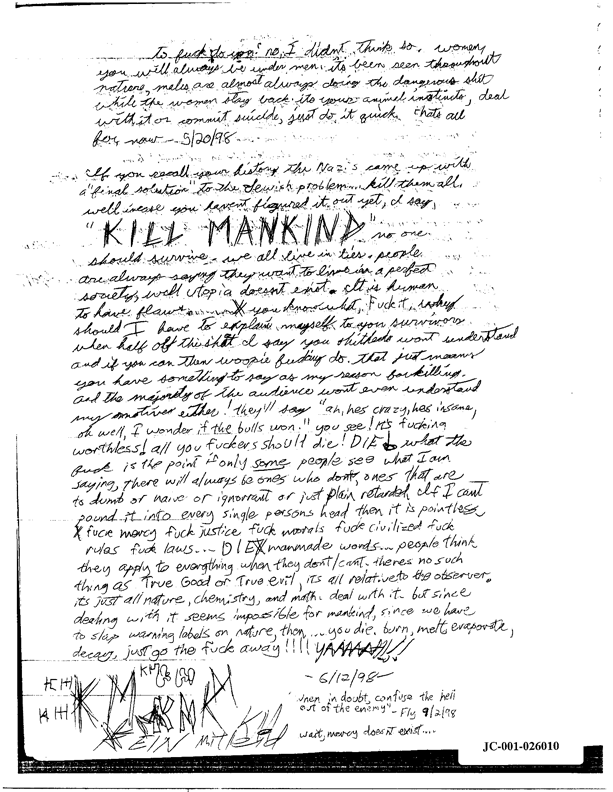 to fuck do you? no, I didnt think so. women,
you will always be under men. its been seen throughout
nature, males are almost always doing the dangerous shit
while the women stay back. its your animal instincts, deal
with it or commit suicide, just do it quick. thats all
for now - 5/20/98
If you recall your history the Nazis came up with
a "final solution" to the Jewish problem... kill them all.
well incase you havent figured it out yet, I say,
"KILL MANKIND" no one
should survive. we all live in lies. people
are always saying they want to live in a perfect
society, well utopia doesnt exist. It is human
to have flaws... you know what, Fuck it, why
should I have to explain myself to you survivors
when half of this shit I say you shitheads wont understand
and if you can then woopie fucking do. that just means
you have something to say as my reason for killing.
and the majority of the audience wont even understand
my motives either! they'll say "ah, hes crazy, hes insane,
oh well, I wonder if the bulls won." you see! its fucking
worthless! all you fuckers should die! DIE! what the
fuck is the point if only some people see what I am
saying, there will always be ones who dont, ones that are
to dumb or naive or ignorrant or just plain retarded. If I cant
pound it into every single persons head then it is pointless.
fuck mercy fuck justice fuck morals fuck civilized fuck
rules fuck laws... DIE manmade words... people think
they apply to everything when they dont/cant. theres no such
thing as True Good or True evil, its all relative to the observer.
its just all nature, chemistry, and math. deal with it. but since
dealing with it seems impossible for mankind, since we have
to slap warning labels on nature, then... you die. burn, melt, evaporate,
decay, just go the fuck away!!!! YAAAAAH!!
- 6/12/98 -
"when in doubt, confuse the hell
out of the enemy" - Fly 9/2/98
wait, mercy doesnt exist....
JC-001-026010